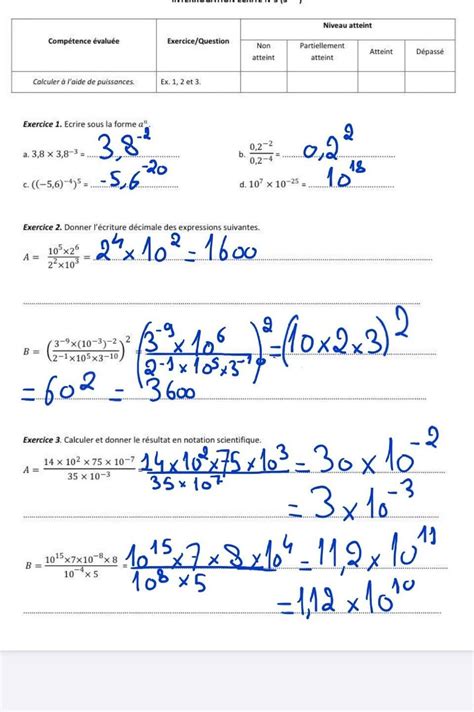 Niveau atteint
Compétence évaluée Exercice/Question Non atteint Partiellement atteint Atteint Dépassé
Calculer à l'aide de puissances. Ex. 1, 2 et 3.
Exercice 1. Ecrire sous la forme aⁿ.
a. 3,8 × 3,8⁻³ = 3,8⁻² b. 0,2⁻²/0,2⁻⁴ = 0,2²
c. ((−5,6)⁻⁴)⁵ = -5,6⁻²⁰ d. 10⁷ × 10⁻²⁵ = 10¹⁸
Exercice 2. Donner l'écriture décimale des expressions suivantes.
A = (10⁵×2⁶)/(2²×10³) = 2⁴ × 10² = 1600
B = ((3⁻⁹×(10⁻³)⁻²)/(2⁻¹×10⁵×3⁻¹⁰))² = ((3⁻⁹ × 10⁶)/(2⁻¹ × 10⁵ × 3⁻¹⁰))² = (10×2×3)²
= 60² = 3600
Exercice 3. Calculer et donner le résultat en notation scientifique.
A = (14 × 10² × 75 × 10⁻⁷)/(35 × 10⁻³) = (14×10²×75×10³)/(35×10⁷) = 30 × 10⁻²
= 3 × 10⁻³
B = (10¹⁵×7×10⁻⁸×8)/(10⁻⁴×5) = (10¹⁵×7×8×10⁴)/(10⁸×5) = 11,2 × 10¹¹
= 1,12 × 10¹⁰